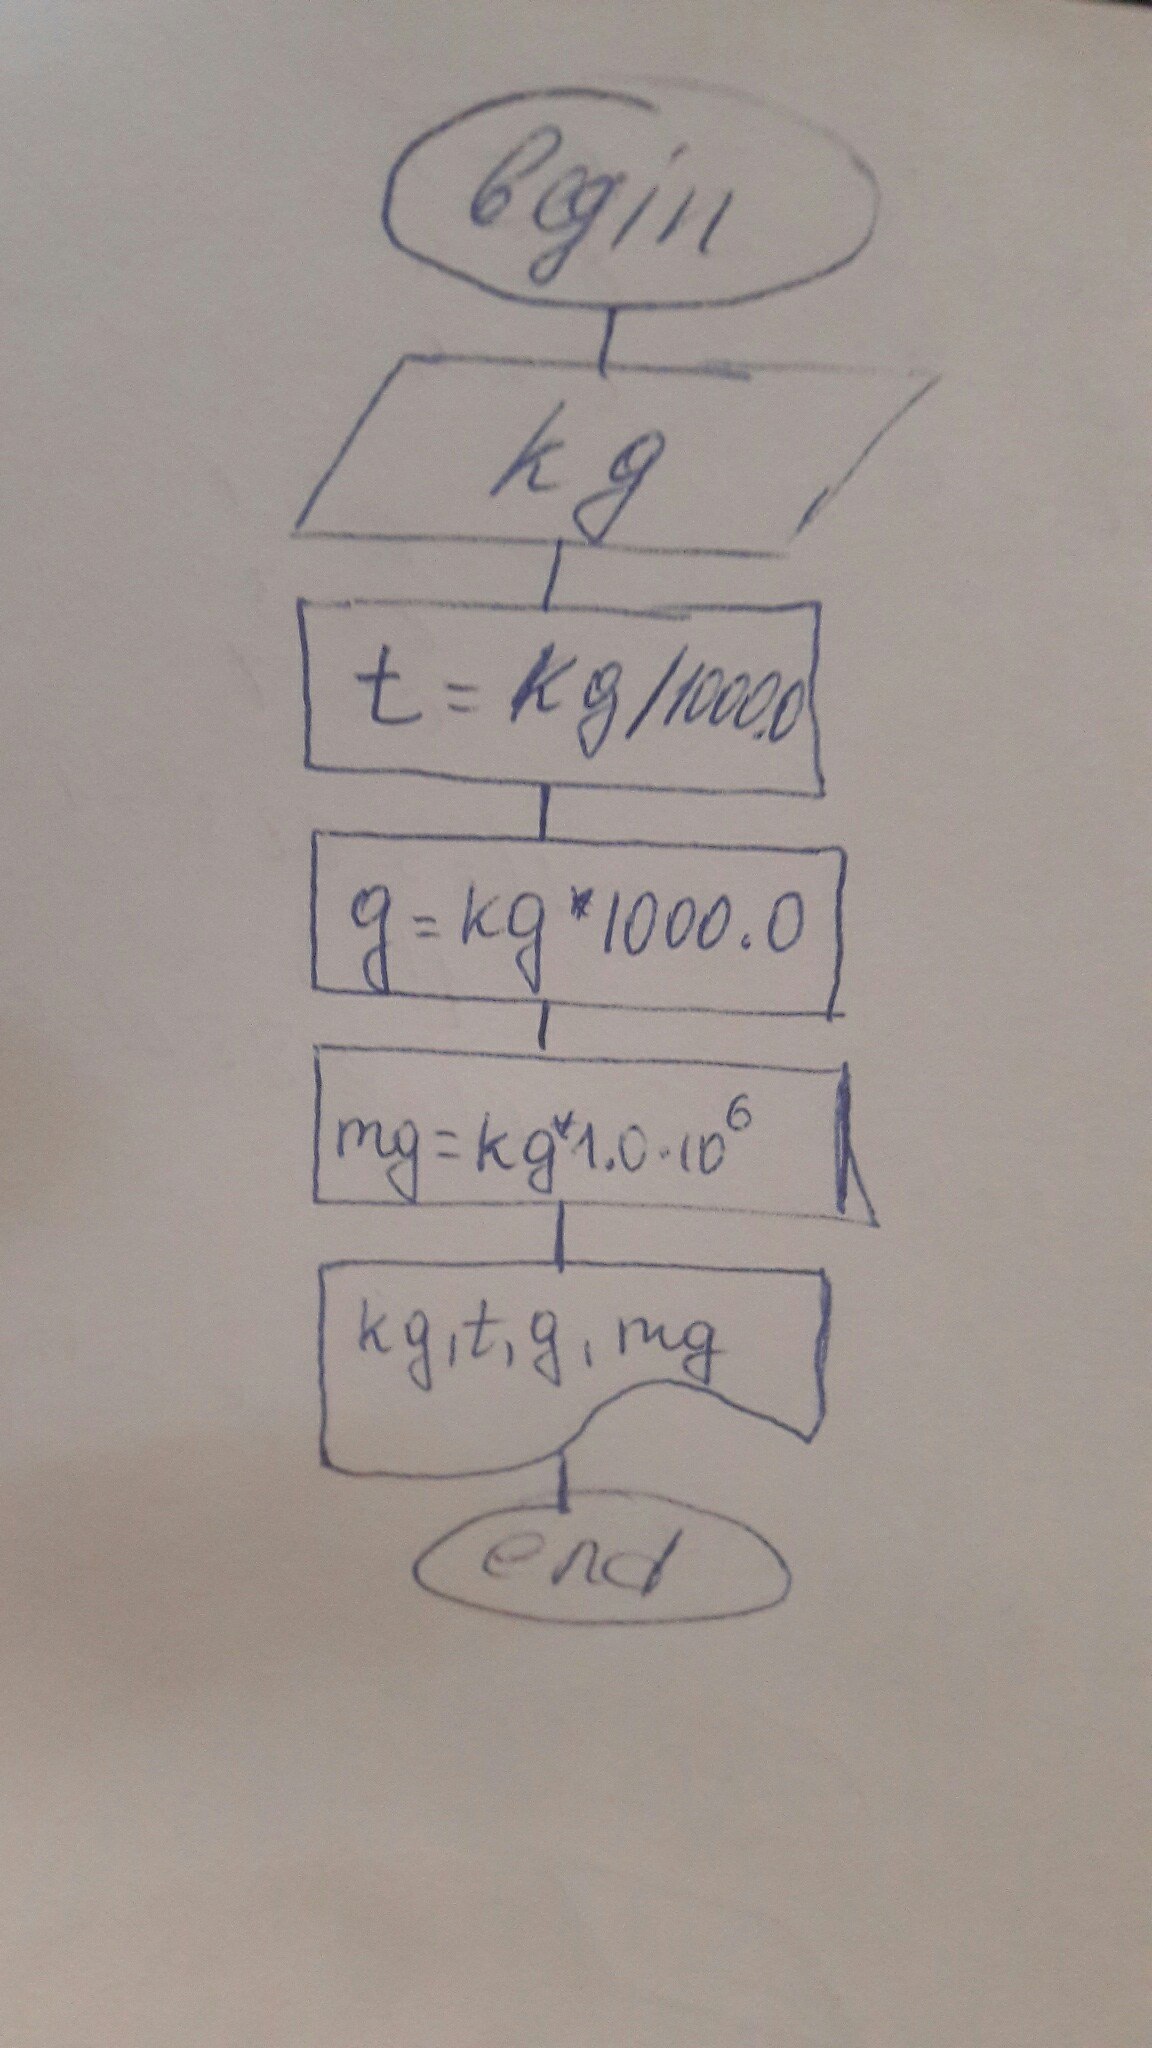 begin
kg
t = kg/1000.0
g = kg*1000.0
mg = kg*1.0·10⁶
kg, t, g, mg
end